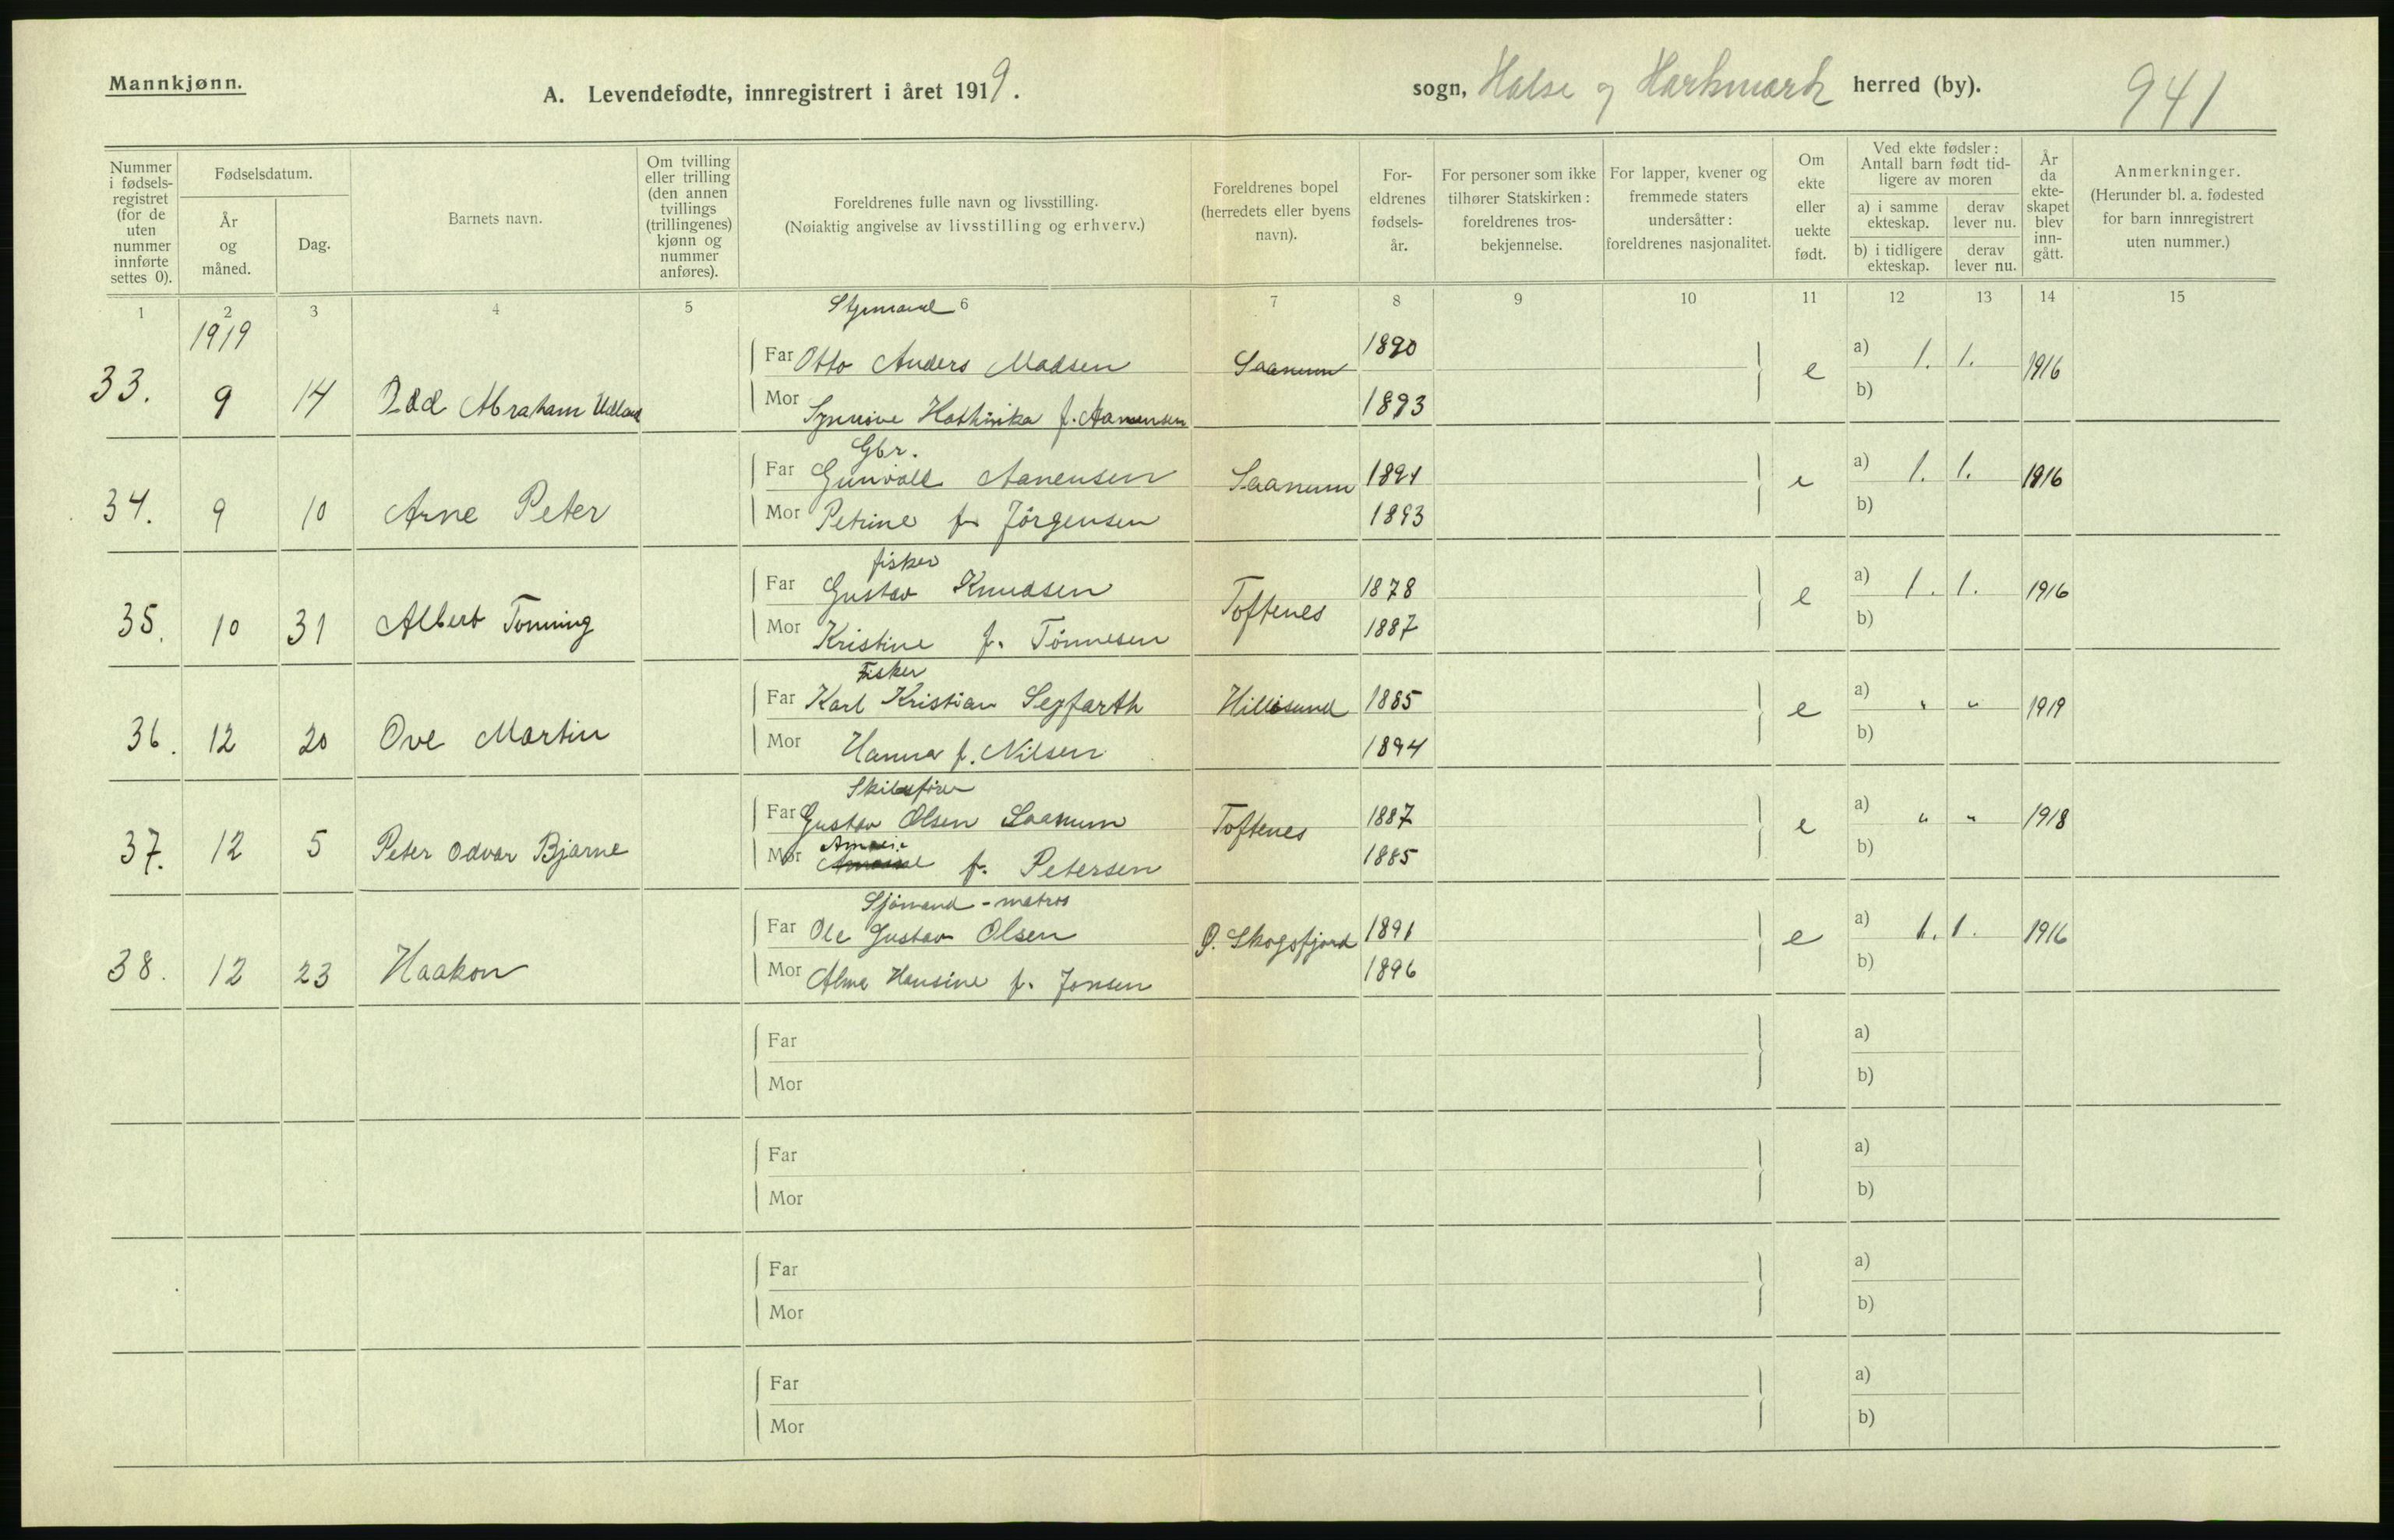 Mannkjønn.
A. Levendefødte, innregistrert i året 1919.
sogn, Halse og Harkmark herred (by).
941
Nummer i fødsels-registret (for de uten nummer innførte settes 0).
Fødselsdatum.
År og måned.
Dag.
Barnets navn.
Om tvilling eller trilling (den annen tvillings (trillingenes) kjønn og nummer anføres).
Foreldrenes fulle navn og livsstilling.
(Nøiaktig angivelse av livsstilling og erhverv.)
Foreldrenes bopel (herredets eller byens navn).
For-eldrenes fødsels-år.
For personer som ikke tilhører Statskirken: foreldrenes tros-bekjennelse.
For lapper, kvener og fremmede staters undersåtter: foreldrenes nasjonalitet.
Om ekte eller uekte født.
Ved ekte fødsler: Antall barn født tid-ligere av moren
a) i samme ekteskap.
derav lever nu.
b) i tidligere ekteskap.
derav lever nu.
År da ekte-skapet blev inn-gått.
Anmerkninger.
(Herunder bl. a. fødested for barn innregistrert uten nummer.)
1 2 3 4 5 6 7 8 9 10 11 12 13 14 15
1919
Styrmand
33. 9 14 Odd Abraham Udland
Far Otto Anders Madsen Saanum 1890 e a) 1. 1. 1916
Mor Synnøve f. Aanensen 1893 b)
Gbr.
34. 9 10 Arne Peter
Far Gunvall Aanensen Saanum 1891 e a) 1. 1. 1916
Mor Petrine f. Jörgensen 1893 b)
fisker
35. 10 31 Albert Tonning
Far Gustav Knudsen Toftenes 1878 e a) 1. 1. 1916
Mor Kristine f. Tönnesen 1887 b)
Fisker
36. 12 20 Ove Martin
Far Karl Kristian Seyfarth Hillesund 1885 e a) " " 1919
Mor Hanna f. Nilsen 1894 b)
37. 12 5 Peter Odvar Bjarne
Far Gustav Olsen Saanum Toftenes 1887 e a) " " 1918
Mor f. Petersen 1885 b)
Sjömand - matros
38. 12 23 Haakon
Far Ole Gustav Olsen Ø. Skogsfjord 1891 e a) 1. 1. 1916
Mor Alma Hansine f. Jonsen 1896 b)
Far a)
Mor b)
Far a)
Mor b)
Far a)
Mor b)
Far a)
Mor b)